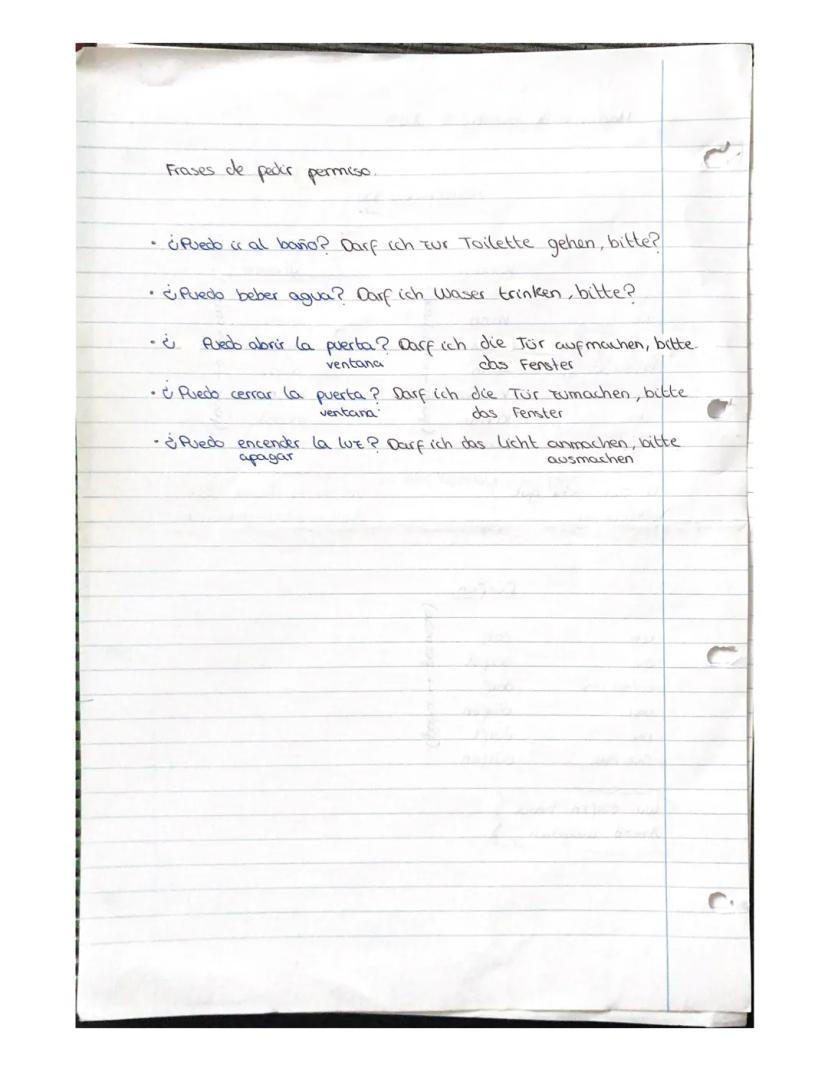 Frases de pedir permiso.
• ¿Puedo ir al baño? Darf ich zur Toilette gehen, bitte?
• ¿Puedo beber agua? Darf ich Waser trinken, bitte?
• ¿ Puedo abrir la puerta? Darf ich die Tür aufmachen, bitte.
ventana das Fenster
• ¿Puedo cerrar la puerta? Darf ich die Tür zumachen, bitte
ventana das Fenster
• ¿Puedo encender la luz? Darf ich das licht anmachen, bitte
apagar ausmachen